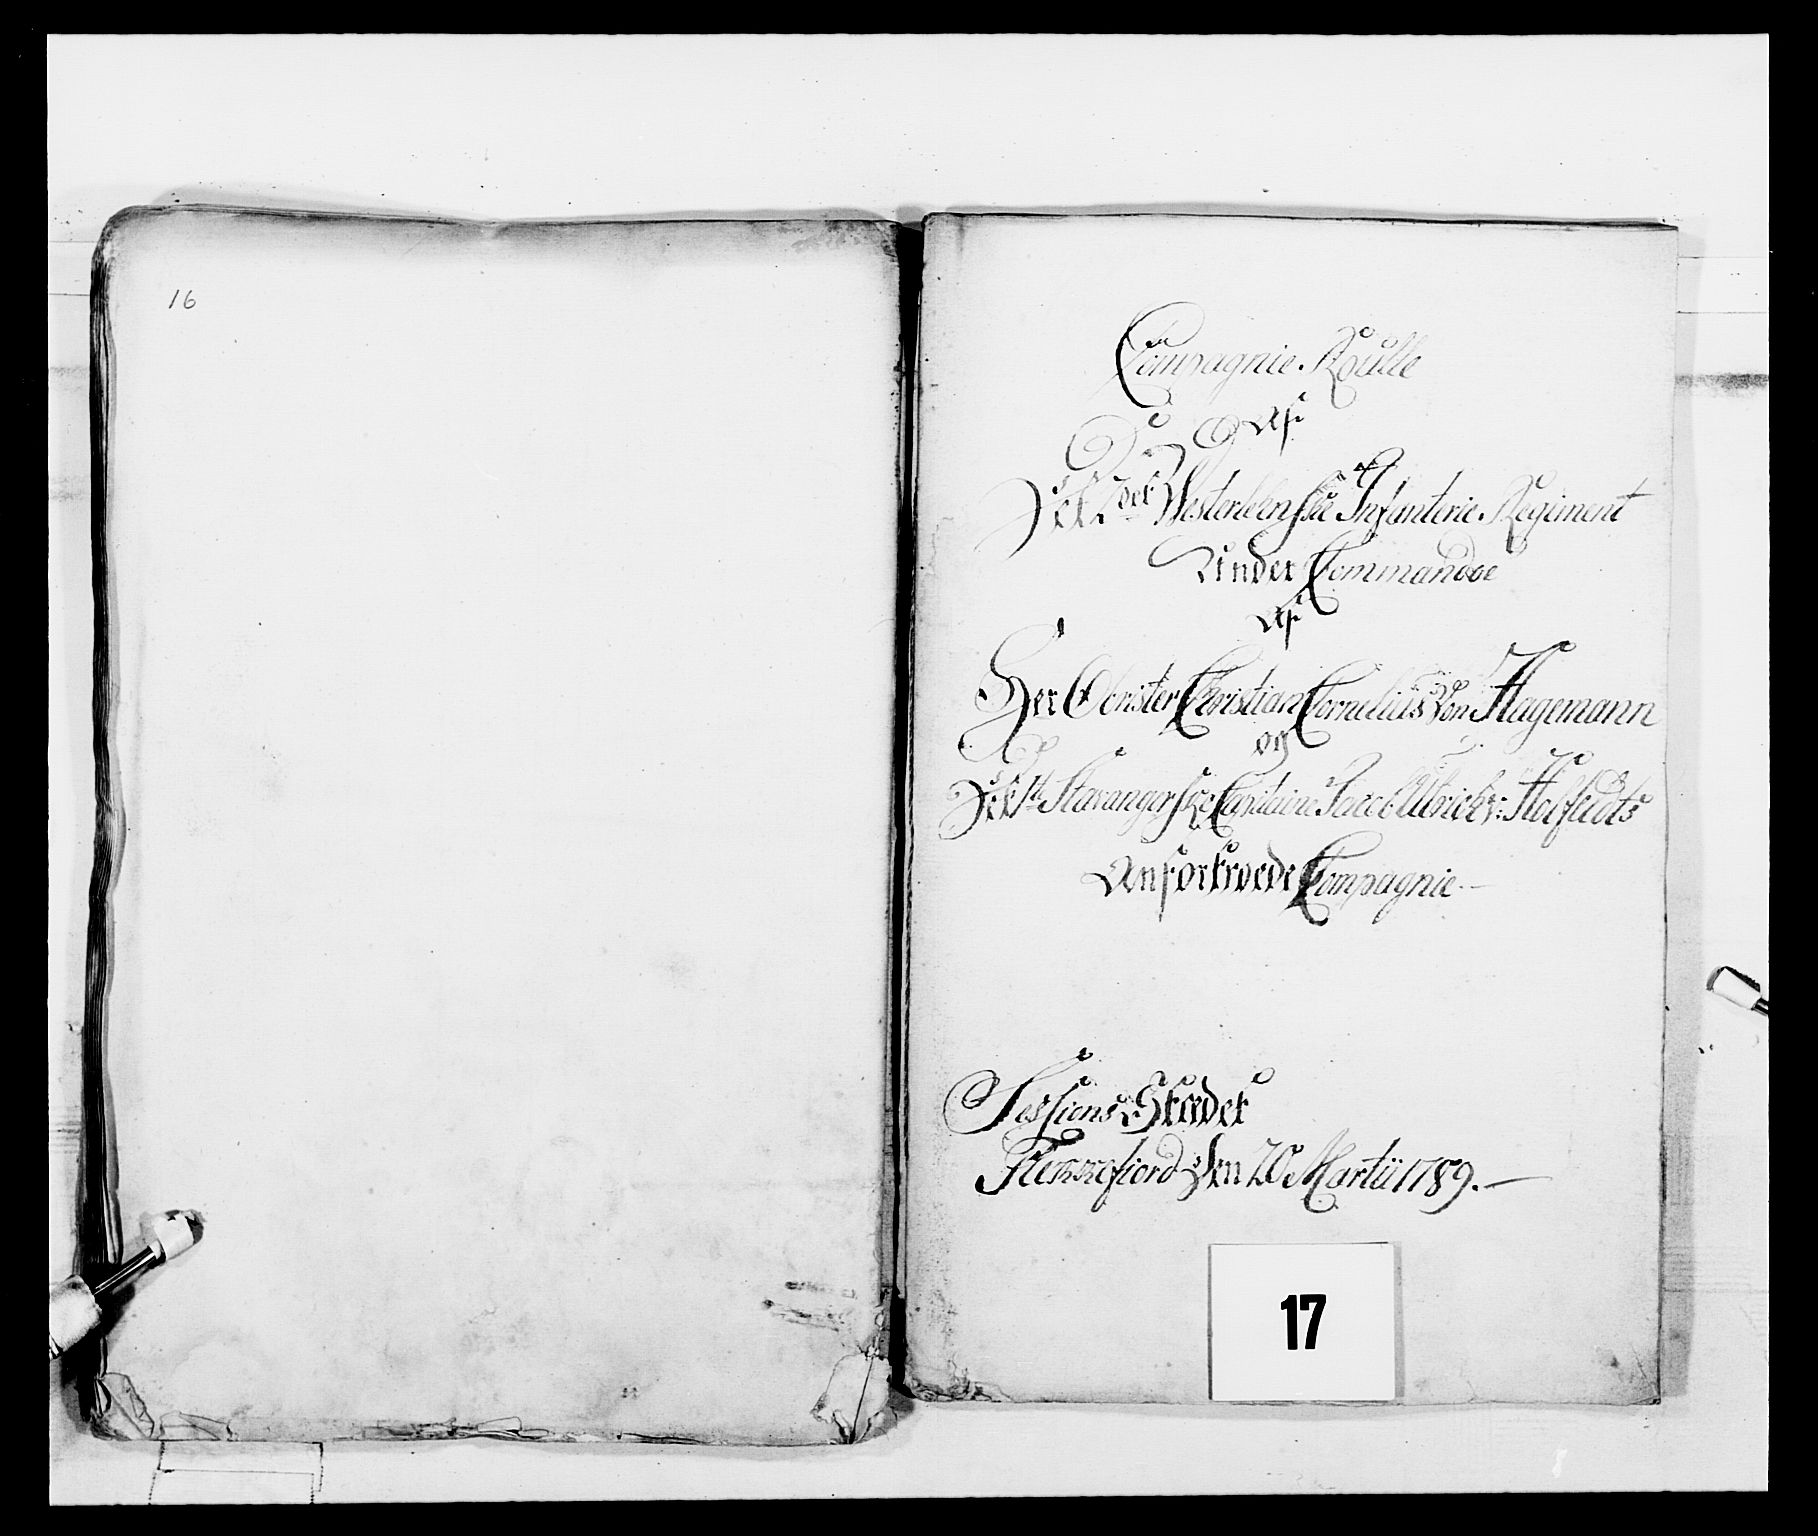 16
Compagnie Roulle
Af
Det 2det Westerlehnske Infanterie Regiment
Under Commandoe
Af
Her Obrister Christian Cornelius Von Hagemann
og
Det 1te Stavangerske Capitaine Jacob Ulrich v: Holfeldts
Anfortroede Compagnie.—
Sessions Stædet
Fleckefiord Den 20 Martii 1789.—
17